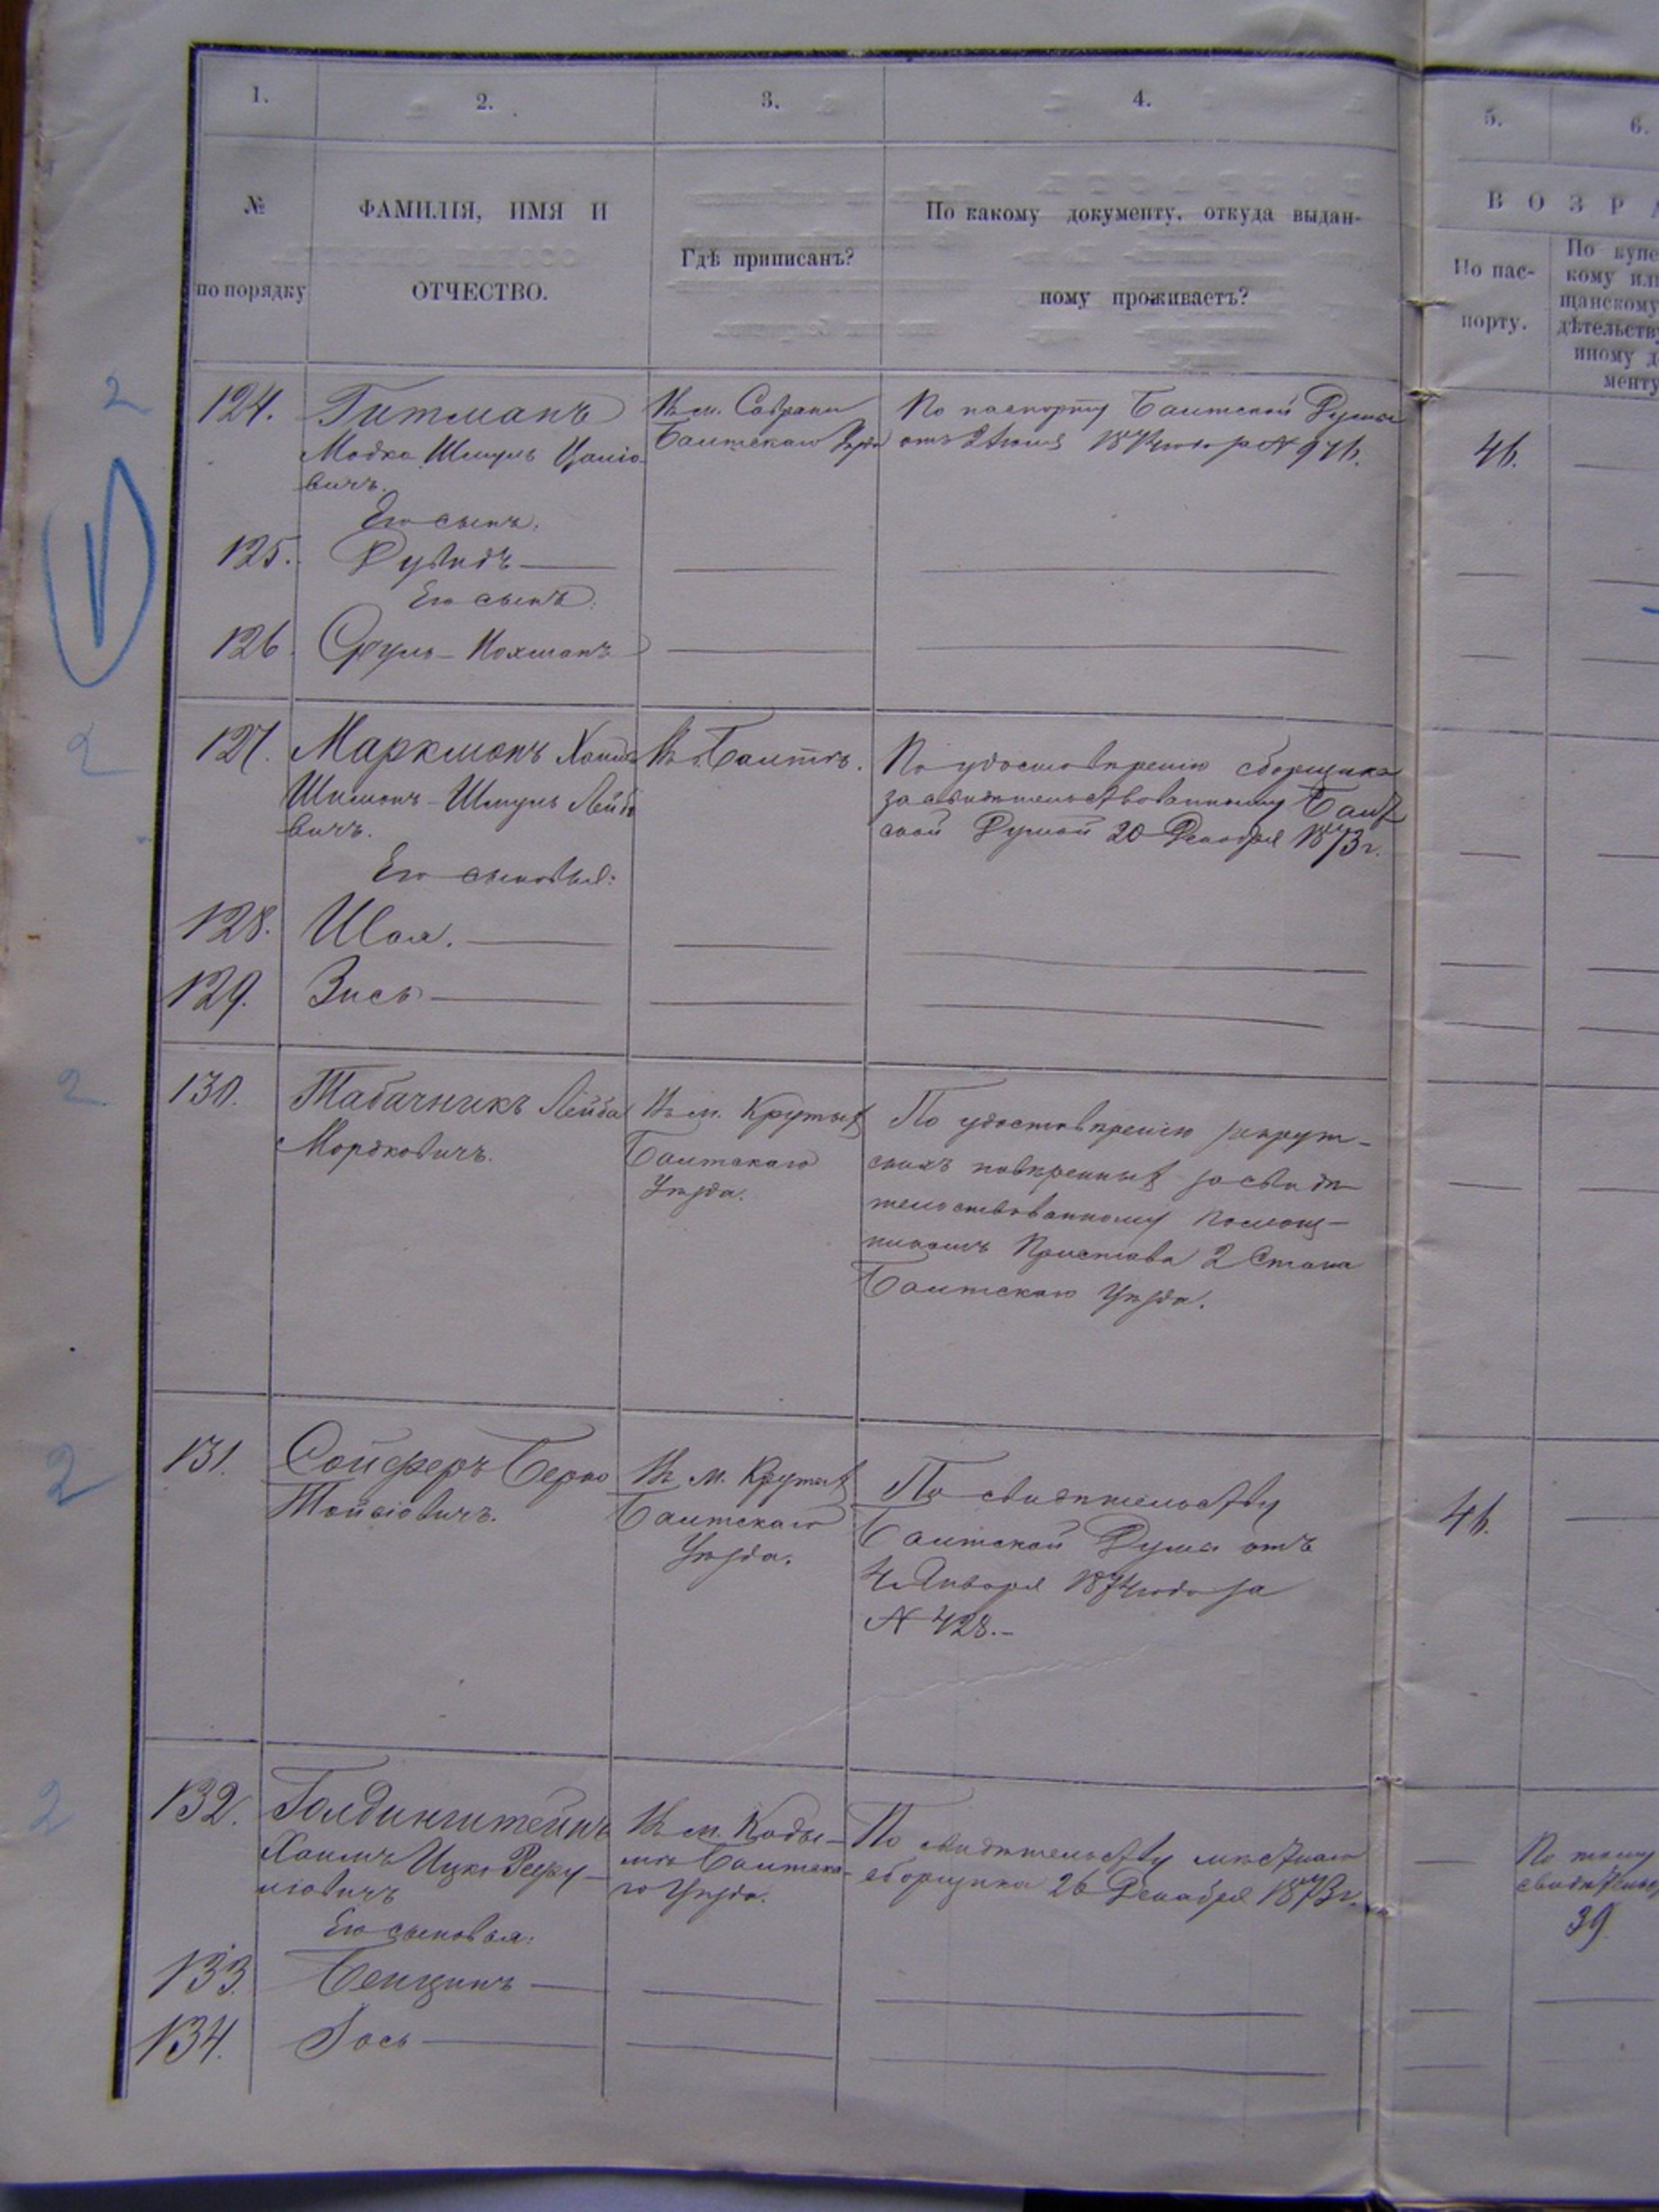 1. 2. 3. 4. 5. 6.
№ по порядку
ФАМИЛІЯ, ИМЯ И
ОТЧЕСТВО.
Гдѣ приписанъ?
По какому документу, откуда выдан-
ному проживаетъ?
ВОЗРА
По пас-
порту.
По купе
кому или
щанскому
дѣтельству
иному д
менту
124. Гитманъ
Шмуль
вичъ.
Въ м. Саврани
Балтскаго Уѣзда
По паспорту Балтской Думы
отъ 2 Іюня 1874 года № 976.
46.
Его сынъ:
125. Дувидъ
Его сынъ:
126. Сруль-Нохманъ
127. Маркманъ
Шимонъ-Шмуль Лейбо
вичъ.
Въ г. Балтѣ.
По удостовѣренію сборщика
засвидѣтельствованному Балт
ской Думой 20 Декабря 1873 г.
Его сыновья:
128. Шая.
129. Зись
130. Табачникъ Лейба
Мордковичъ.
Въ м. Крутыхъ
Балтскаго
Уѣзда.
По удостовѣренію рекрут-
скихъ повѣренныхъ засвидѣ
тельствованному Помощ-
никомъ Пристава 2 Стана
Балтскаго Уѣзда.
131. Сойферъ Берко
Въ м. Крутыхъ
Балтскаго
Уѣзда.
По свидѣтельству
Балтской Думы отъ
4 Января 1874 года за
№ 428.-
46.
132. Голдингштейнъ
Хаимъ Ицко
Въ м. Коды-
мѣ Балтска-
го Уѣзда.
По свидѣтельству мѣстнаго
сборщика 26 Декабря 1873 г.
По тому
39.
Его сыновья:
133. Бенционъ
134. Іось